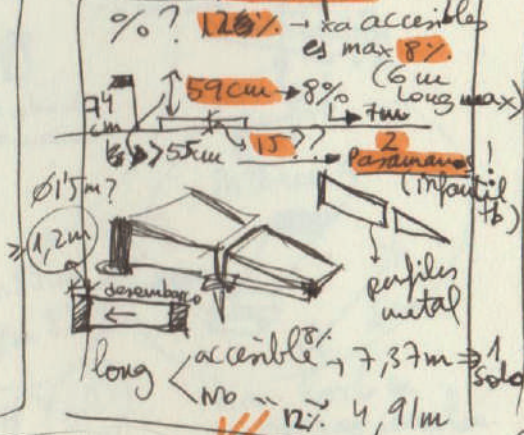 %? 12% → xa accesibles
es max 8%
(6m
long max)
59cm → 8%
↳ 7m
74
cm
> 55cm
15??
2
Pasamanos!
(infantil
tb)
Ø1'5m?
≥ 1,2m
desembarco
perfiles
metal
long
accesible 8% → 7,37m ⇒ 1
solo
No " 12% 4,91m